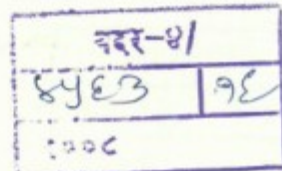 बदर-४/
४५६३ १६
२००८